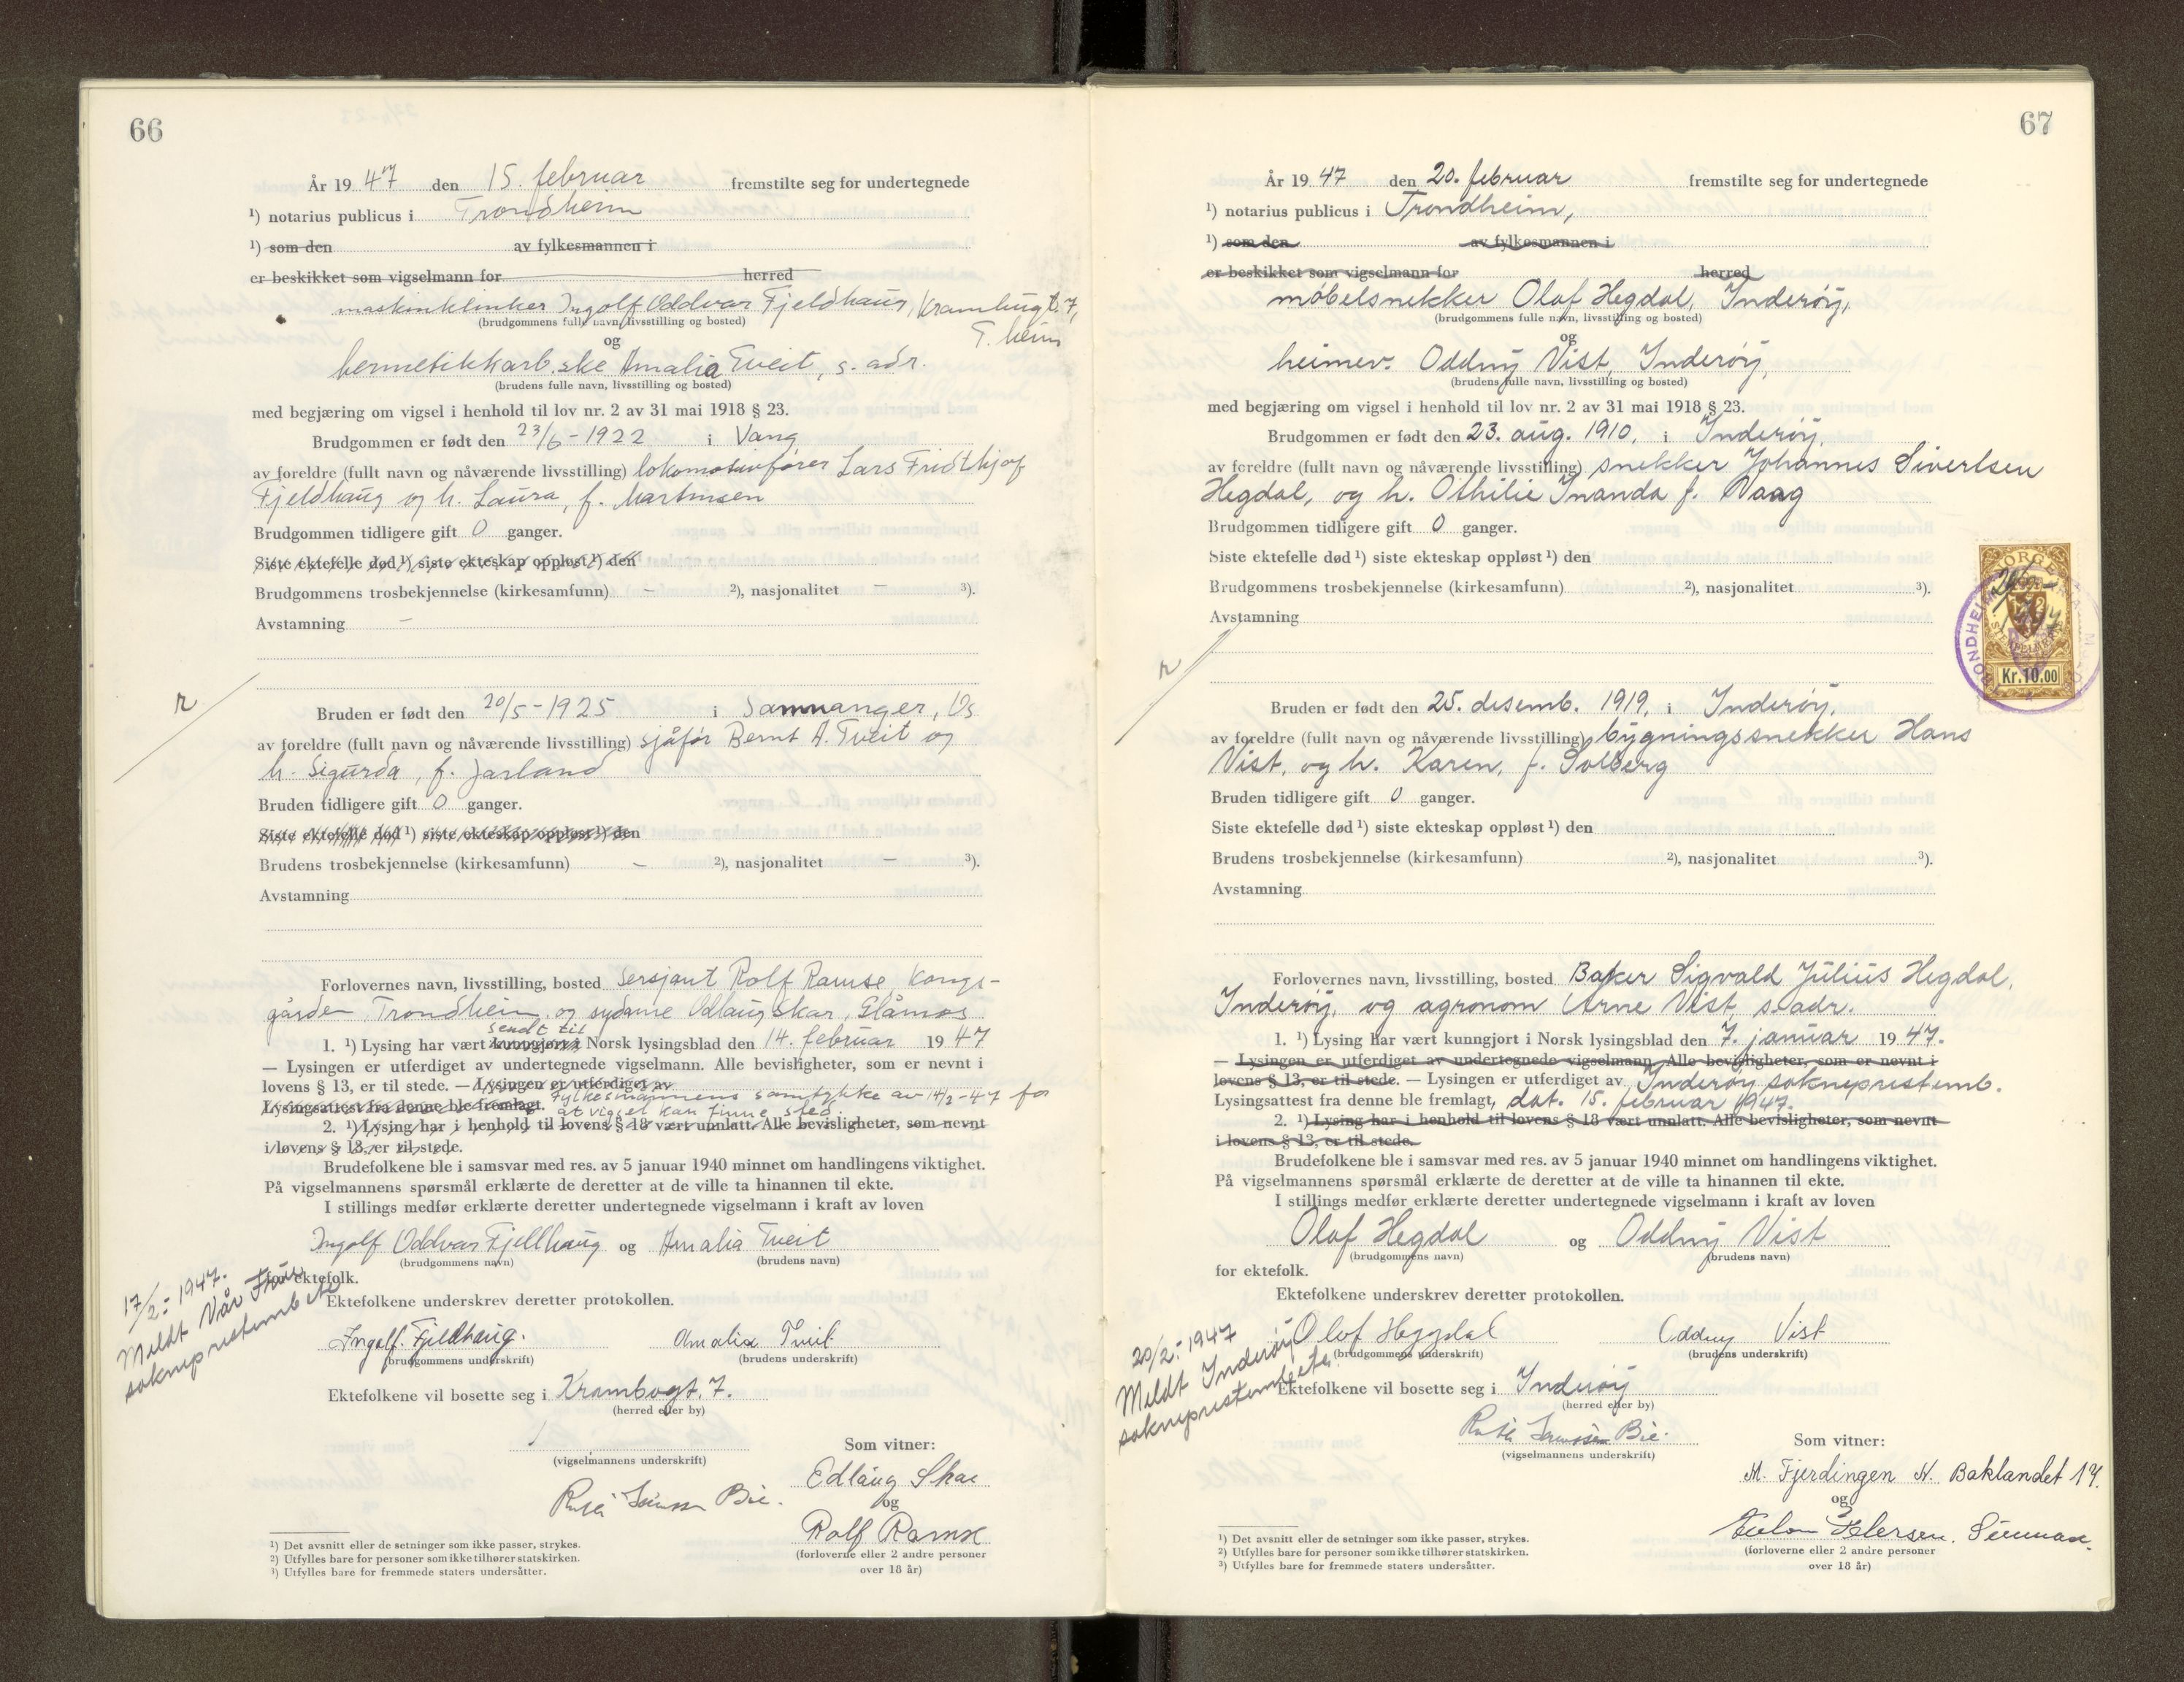 66
År 1947 den 15. februar fremstilte seg for undertegnede
¹) notarius publicus i Trondheim
¹) som den av fylkesmannen i
er beskikket som vigselmann for herred
maskinklinker Ingolf Oddvar Fjeldhaug, Krambugt. 7,
T.heim
(brudgommens fulle navn, livsstilling og bosted)
og
hermetikkarb.ske Amalia Tveit, s. adr.
(brudens fulle navn, livsstilling og bosted)
med begjæring om vigsel i henhold til lov nr. 2 av 31 mai 1918 § 23.
Brudgommen er født den 23/6-1922 i Vang
av foreldre (fullt navn og nåværende livsstilling) lokomotivfører Lars Fridthjof
Fjeldhaug og h. Laura, f. Martinsen
Brudgommen tidligere gift 0 ganger.
Siste ektefelle død ¹) siste ekteskap oppløst ¹) den
Brudgommens trosbekjennelse (kirkesamfunn) – ²), nasjonalitet – ³).
Avstamning –
r
Bruden er født den 20/5-1925 i Samnanger, Os
av foreldre (fullt navn og nåværende livsstilling) sjåfør Bernt A. Tveit og
h. Sigurda, f. Jarland
Bruden tidligere gift 0 ganger.
Siste ektefelle død ¹) siste ekteskap oppløst ¹) den
Brudens trosbekjennelse (kirkesamfunn) – ²), nasjonalitet – ³).
Avstamning
Forlovernes navn, livsstilling, bosted Sersjant Rolf Ramse, Kongs-
gården, Trondheim, og sydame Edlaug Skar, Glåmos
sendt til
1. ¹) Lysing har vært kunngjort i Norsk lysingsblad den 14. februar 1947
— Lysingen er utferdiget av undertegnede vigselmann. Alle bevisligheter, som er nevnt i
lovens § 13, er til stede. — Lysingen er utferdiget av
Fylkesmannens samtykke av 14/2-47 for
Lysingsattest fra denne ble fremlagt. at vigsel kan finne sted.
2. ¹) Lysing har i henhold til lovens § 18 vært unnlatt. Alle bevisligheter, som nevnt
i lovens § 13, er til stede.
Brudefolkene ble i samsvar med res. av 5 januar 1940 minnet om handlingens viktighet.
På vigselmannens spørsmål erklærte de deretter at de ville ta hinannen til ekte.
I stillings medfør erklærte deretter undertegnede vigselmann i kraft av loven
Ingolf Oddvar Fjellhaug og Amalia Tveit
(brudgommens navn) (brudens navn)
for ektefolk.
17/2.- 1947.
Meldt Vår Frue
sokneprestembete
Ektefolkene underskrev deretter protokollen.
Ingolf. Fjeldhaug. Amalia Tveit
(brudgommens underskrift) (brudens underskrift)
Ektefolkene vil bosette seg i Krambugt. 7.
(herred eller by)
(vigselmannens underskrift)
Bie.
Som vitner:
Edlaug Skar
og
Rolf Ramse
(forloverne eller 2 andre personer
over 18 år)
¹) Det avsnitt eller de setninger som ikke passer, strykes.
²) Utfylles bare for personer som ikke tilhører statskirken.
³) Utfylles bare for fremmede staters undersåtter.
67
År 1947 den 20. februar fremstilte seg for undertegnede
¹) notarius publicus i Trondheim,
¹) som den av fylkesmannen i
er beskikket som vigselmann for herred
møbelsnekker Olaf Hegdal, Inderøy,
(brudgommens fulle navn, livsstilling og bosted)
og
heimev. Oddny Vist, Inderøy,
(brudens fulle navn, livsstilling og bosted)
med begjæring om vigsel i henhold til lov nr. 2 av 31 mai 1918 § 23.
Brudgommen er født den 23. aug. 1910, i Inderøy,
av foreldre (fullt navn og nåværende livsstilling) snekker Johannes Sivertsen
Hegdal, og h. Othilie Inanda f. Vaag
Brudgommen tidligere gift 0 ganger.
Siste ektefelle død ¹) siste ekteskap oppløst ¹) den
Brudgommens trosbekjennelse (kirkesamfunn) ²), nasjonalitet ³).
Avstamning
r
NORGE
Kr. 10.00
TRONDHEIM
Bruden er født den 25. desemb. 1919, i Inderøy,
av foreldre (fullt navn og nåværende livsstilling) bygningssnekker Hans
Vist, og h. Karen, f. Solberg
Bruden tidligere gift 0 ganger.
Siste ektefelle død ¹) siste ekteskap oppløst ¹) den
Brudens trosbekjennelse (kirkesamfunn) ²), nasjonalitet ³).
Avstamning
Forlovernes navn, livsstilling, bosted Baker Sigvald Julius Hegdal,
Inderøy, og agronom Arne Vist, s. adr.
1. ¹) Lysing har vært kunngjort i Norsk lysingsblad den 7. januar 1947.
— Lysingen er utferdiget av undertegnede vigselmann. Alle bevisligheter, som er nevnt i
lovens § 13, er til stede. — Lysingen er utferdiget av Inderøy sokneprestemb.
Lysingsattest fra denne ble fremlagt, dat. 15. februar 1947.
2. ¹) Lysing har i henhold til lovens § 18 vært unnlatt. Alle bevisligheter, som nevnt
i lovens § 13, er til stede.
Brudefolkene ble i samsvar med res. av 5 januar 1940 minnet om handlingens viktighet.
På vigselmannens spørsmål erklærte de deretter at de ville ta hinannen til ekte.
I stillings medfør erklærte deretter undertegnede vigselmann i kraft av loven
Olaf Hegdal og Oddny Vist
(brudgommens navn) (brudens navn)
for ektefolk.
Ektefolkene underskrev deretter protokollen.
20/2.- 1947
Meldt Inderøy
sokneprestembete.
Olof Heggdal Oddny Vist
(brudgommens underskrift) (brudens underskrift)
Ektefolkene vil bosette seg i Inderøy
(herred eller by)
Bie.
(vigselmannens underskrift)
Som vitner:
M. Fjerdingen N. Baklandet 14.
og
Petersen.
(forloverne eller 2 andre personer
over 18 år)
¹) Det avsnitt eller de setninger som ikke passer, strykes.
²) Utfylles bare for personer som ikke tilhører statskirken.
³) Utfylles bare for fremmede staters undersåtter.